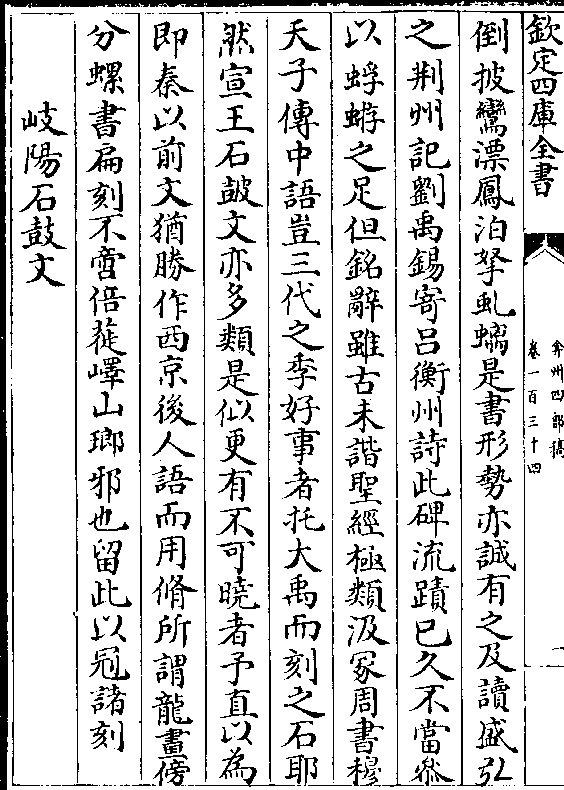 欽定四庫全書
弇州四部稿
卷一百三十四
一
倒披鸞漂鳳泊拏虬螭是書形勢亦誠有之及讀盛弘
之荆州記劉禹錫寄吕衡州詩此碑流蹟已久不當叅
以蜉蝣之足但銘辭雖古未諧聖經極類汲冢周書穆
天子傳中語豈三代之季好事者托大禹而刻之石耶
然宣王石鼓文亦多類是似更有不可曉者予直以為
即秦以前文猶勝作西京後人語而用脩所謂龍畫傍
分螺書扁刻不啻倍蓰嶧山瑯邪也留此以冠諸刻
岐陽石鼓文